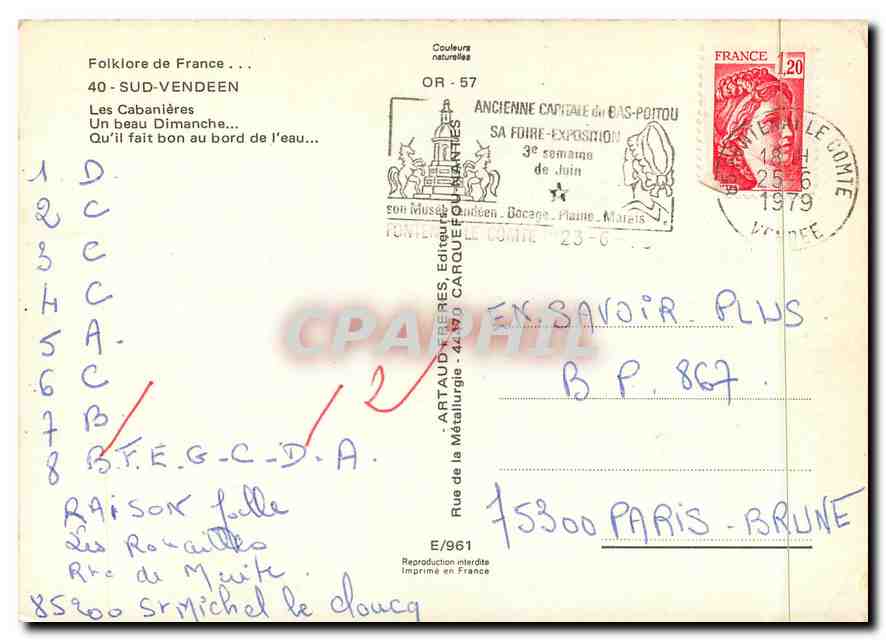 Folklore de France . . .
40 - SUD-VENDEEN
Les Cabanières
Un beau Dimanche...
Qu'il fait bon au bord de l'eau...
1 D.
2 C
3 C
4 C
5 A.
6 C
7 B
8 B.F.E.G-C-D-A.
RAISON Joëlle
Les
Rte de
85200 St Michel le Cloucq
Couleurs
naturelles
OR - 57
- ARTAUD FRERES, Editeurs,
Rue de la Métallurgie - 44470 CARQUEFOU-NANTES
E/961
Reproduction interdite
Imprimé en France
2
ANCIENNE CAPITALE du BAS-POITOU
SA FOIRE-EXPOSITION
3e semaine
de Juin
son Musée Vendéen . Bocage . Plaine . Marais
FONTENAY LE COMTE 23-6
FRANCE 1,20
FONTENAY LE COMTE
18 H
25-6
1979
VENDEE
EN. SAVOIR. PLUS
B P. 867.
75300 PARIS - BRUNE
CPAPHIL